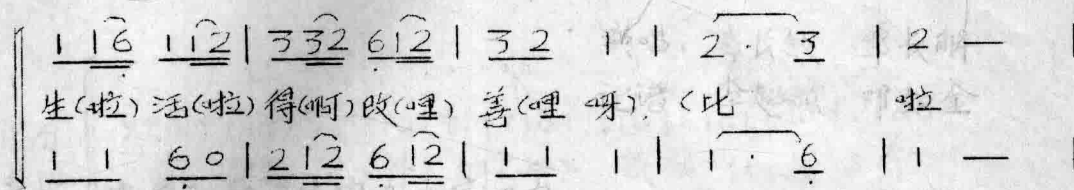 1 1 6 1 1 2 | 3 3 2 6 1 2 | 3 2 1 | 2 · 3 | 2 — |
生(啦) 活(啦) 得(啊) 改(哩) 善(哩 呀). (比 啦
1 1 6 0 | 2 1 2 6 1 2 | 1 1 1 | 1 · 6 | 1 — |